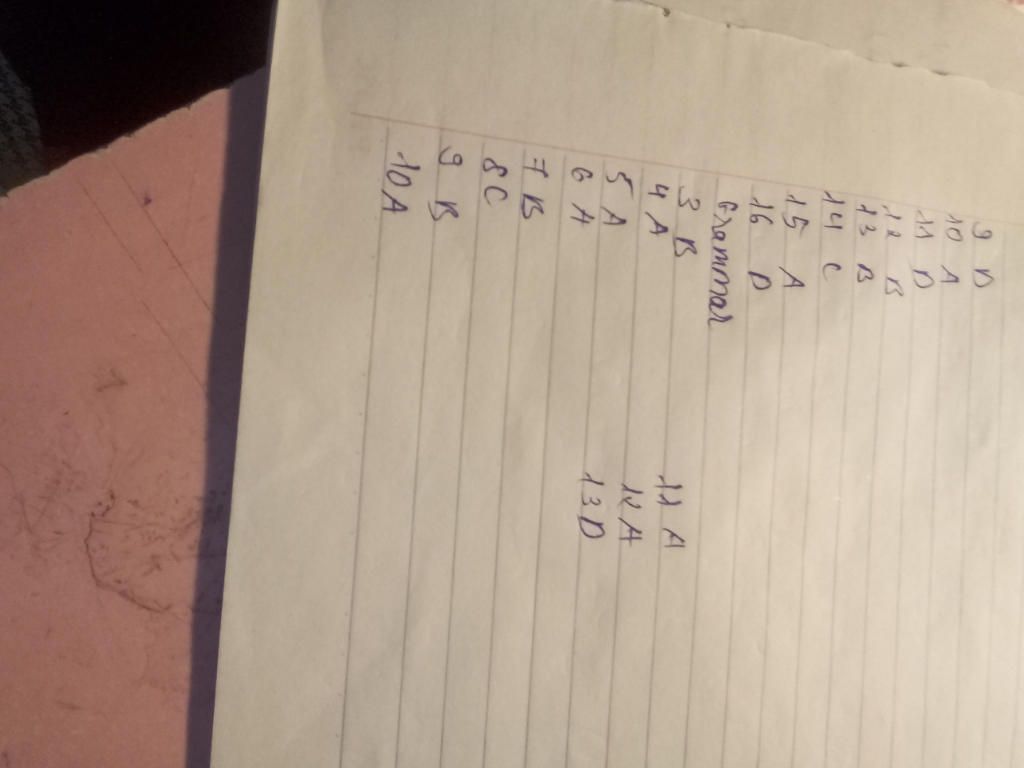 9 D
10 A
11 D
12 B
13 B
14 C
15 A
16 D
Grammar
3 B
4 A
5 A
6 A
7 B
8 C
9 B
10 A
11 A
12 A
13 D